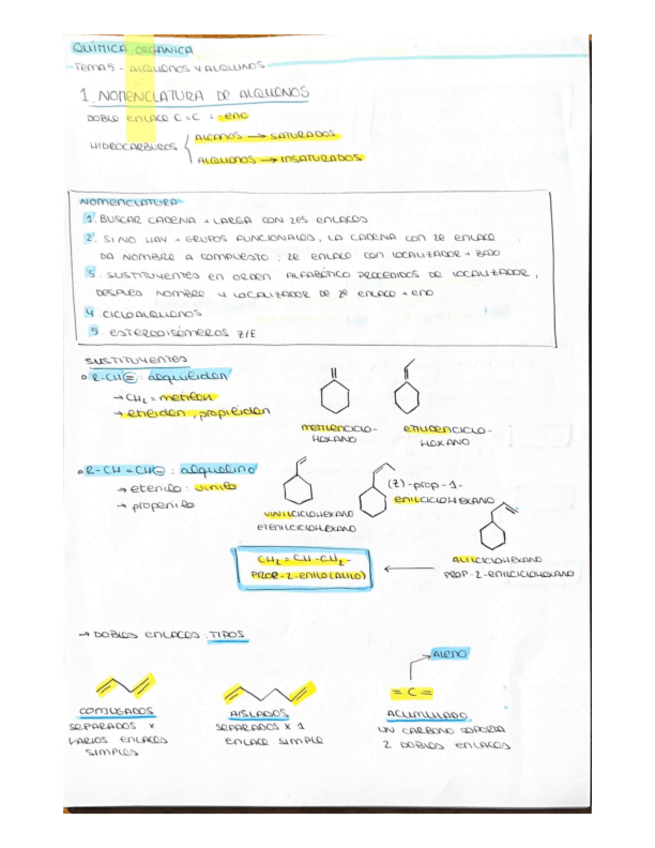 QUÍMICA ORGANICA
TEMA 5 - ALQUENOS Y ALQUINOS
1. NOMENCLATURA DE ALQUENOS
DOBLE ENLACE C=C : -eno
HIDROCARBUROS
ALCANOS → SATURADOS
ALQUENOS → INSATURADOS
NOMENCLATURA
1. BUSCAR CADENA + LARGA CON 2ES ENLACES
2. SI NO HAY + GRUPOS FUNCIONALES, LA CADENA CON 2E ENLACE
DA NOMBRE A COMPUESTO : 2E ENLACE CON LOCALIZADOR + BAJO
3. SUSTITUYENTES EN ORDEN ALFABÉTICO PRECEDIDOS DE LOCALIZADOR,
DESPUÉS NOMBRE Y LOCALIZADOR DE 2E ENLACE + ENO
4. CICLOALQUENOS
5. ESTEROISÓMEROS Z/E
SUSTITUYENTES
R-CH= : alquiliden
→ CH2 = metilen
→ etiliden, propiliden
METILENCICLO-
HEXANO
ETILIDENCICLO-
HEXANO
R-CH=CH- : alquenilo
→ etenilo : vinilo
→ propenilo
VINILCICLOHEXANO
ETENILCICLOHEXANO
(Z)-prop-1-
ENILCICLOHEXANO
ALILCICLOHEXANO
PROP-2-ENILCICLOHEXANO
CH2=CH-CH2-
PROP-2-ENILO (ALILO)
→ DOBLES ENLACES : TIPOS
ALENO
= C =
CONJUGADOS
SEPARADOS X
VARIOS ENLACES
SIMPLES
AISLADOS
SEPARADOS X 1
ENLACE SIMPLE
ACUMULADO
UN CARBONO SOPORTA
2 DOBLES ENLACES